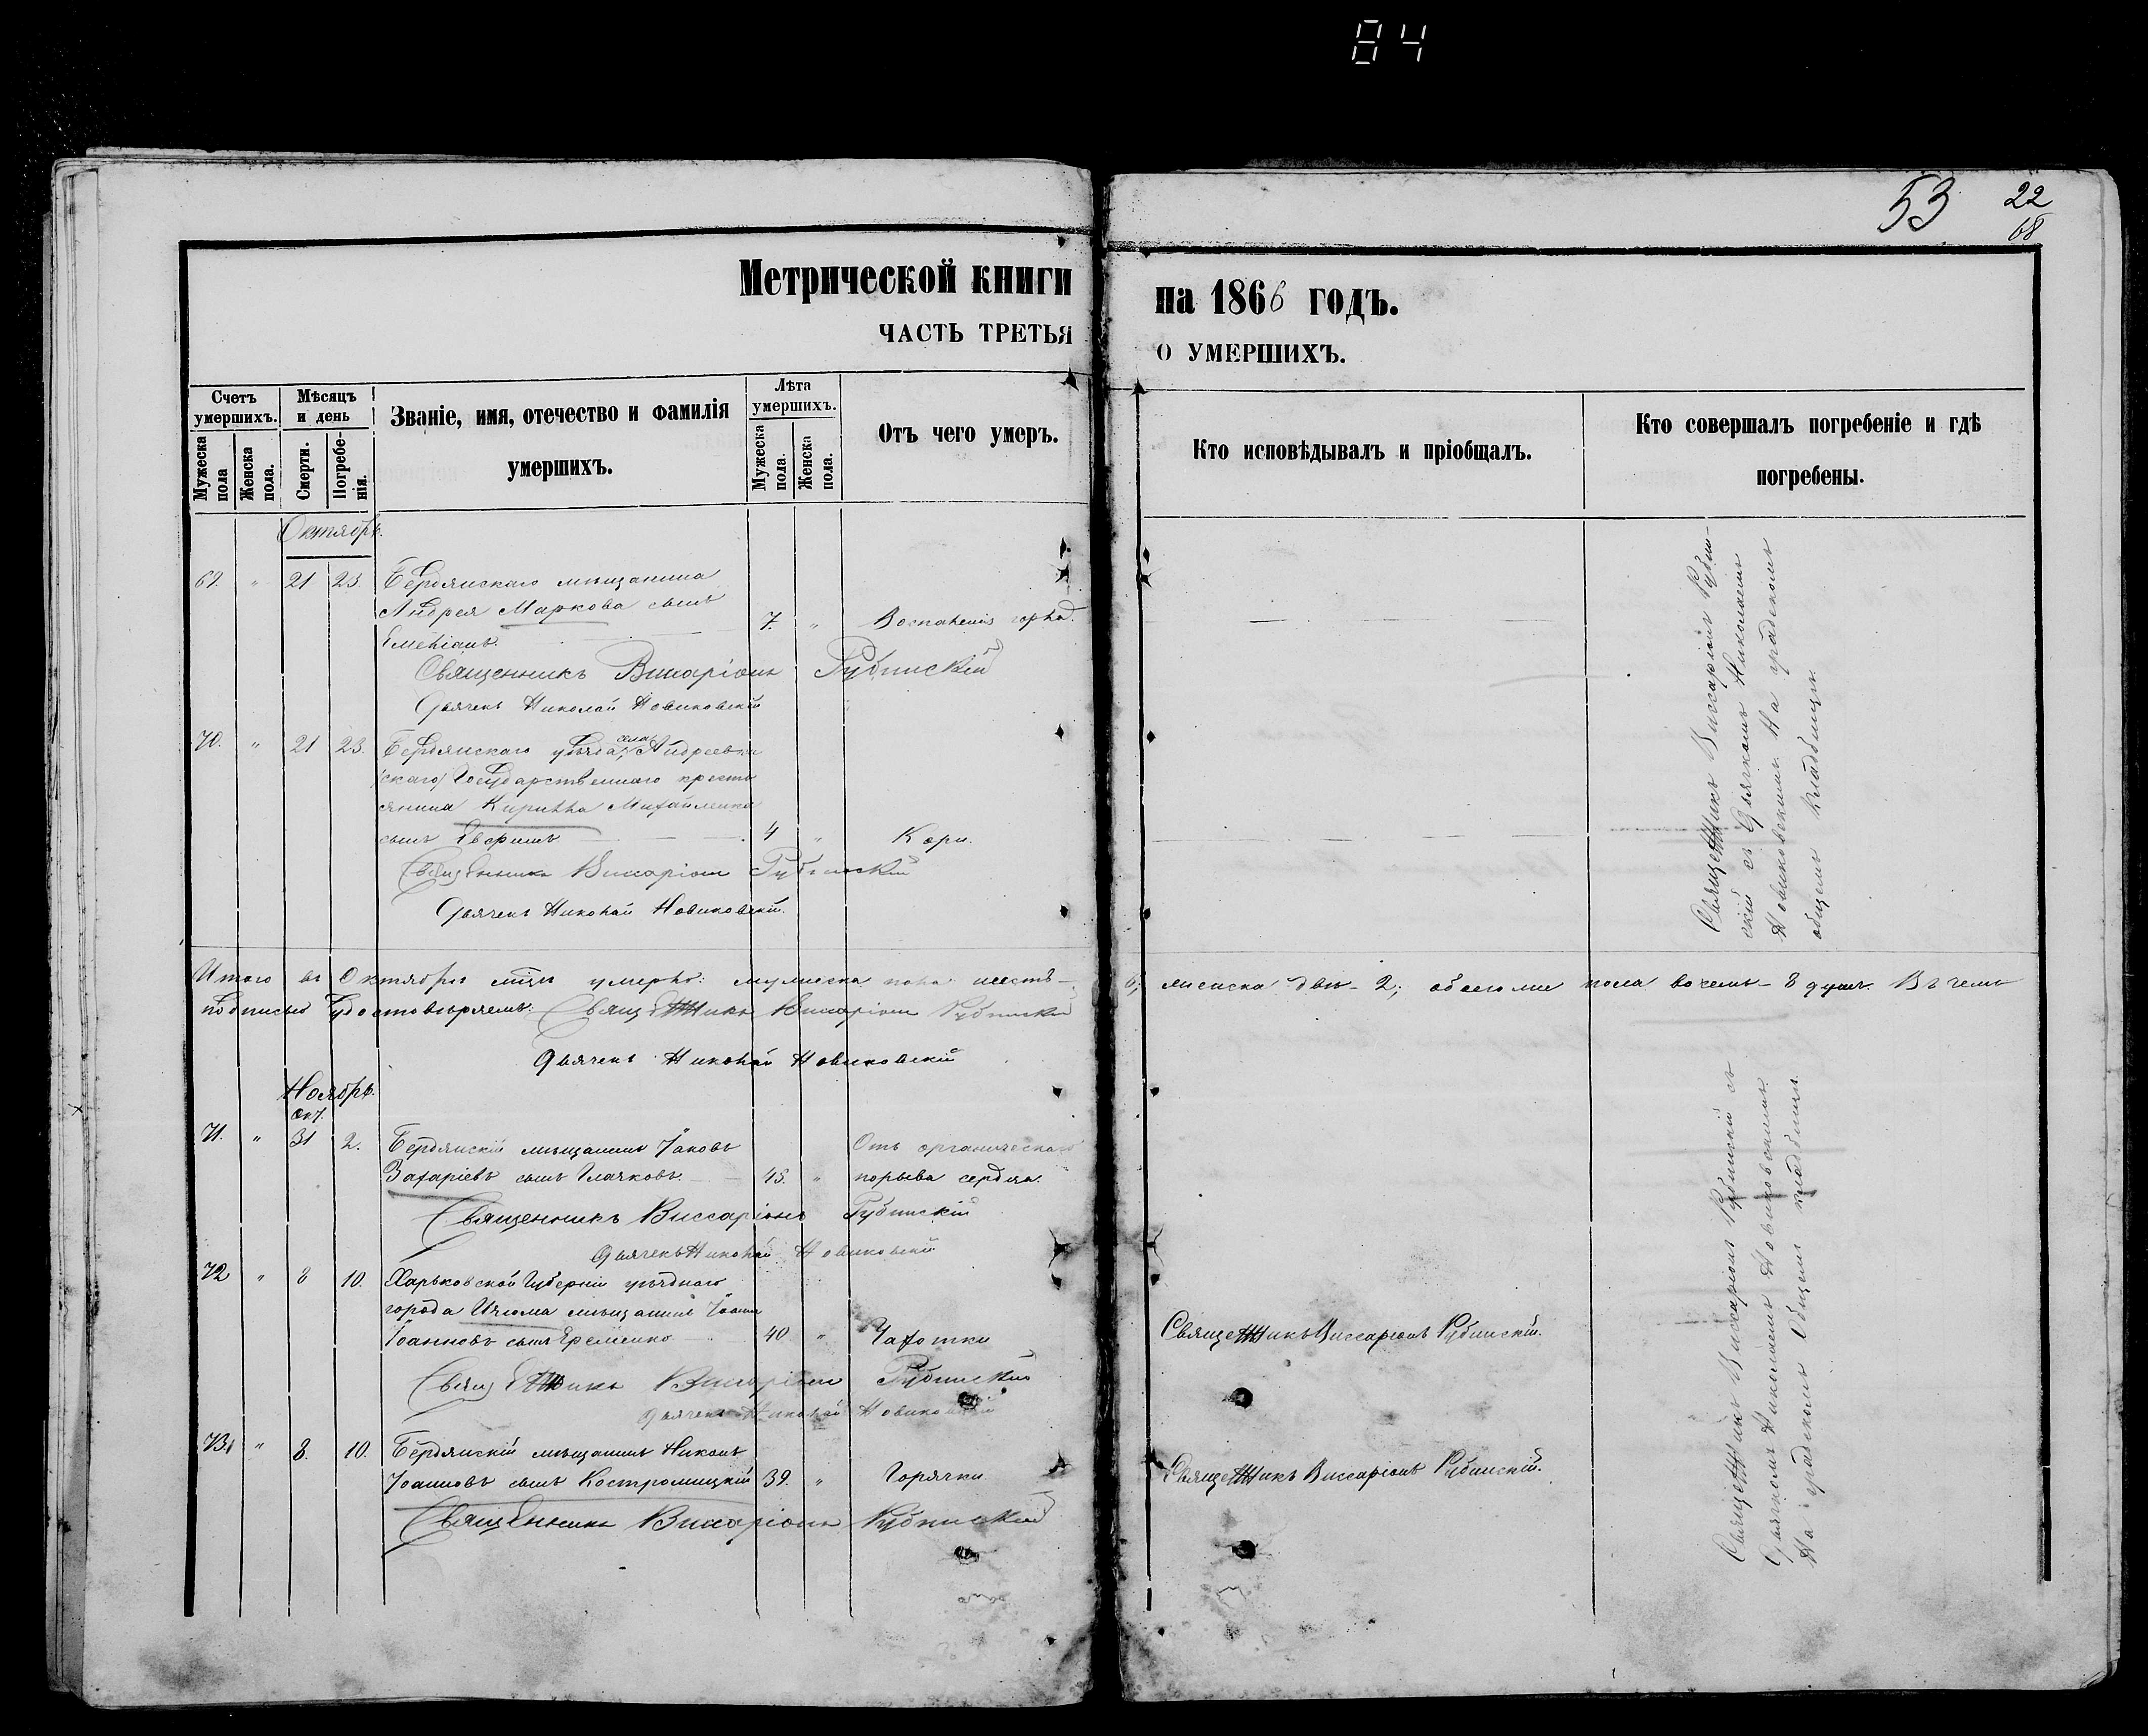 84
53
22
68
Метрической книги
на 1866 годъ.
ЧАСТЬ ТРЕТЬЯ
О УМЕРШИХЪ.
Счетъ умершихъ.
Мужеска пола
Женска пола.
Мѣсяцъ и день
Смерти.
Погребенія.
Званіе, имя, отечество и фамилія
умершихъ.
Лѣта умершихъ.
Мужеска пола.
Женска пола.
Отъ чего умеръ.
Кто исповѣдывалъ и пріобщалъ.
Кто совершалъ погребеніе и гдѣ
погребены.
Октябрь.
69. " 21 23. Бердянскаго мѣщанина
Андрея Маркова сынъ
Емеліанъ. 7. " Воспаленія горла.
Священникъ Виссаріонъ Рубинскій
Дьячекъ Николай Новиковскій
70. " 21 23. Бердянскаго уѣзда, села Андреевки
(скаго) Государственнаго кресть
янина Кирилла Михайленка
сынъ 4 " Кори.
Священникъ Виссаріонъ Рубинскій
Дьячекъ Николай Новиковскій.
Священникъ Виссаріонъ Рубин-
скій съ Дьячкомъ Николаемъ
Новиковскимъ На градскомъ
общемъ кладбищѣ.
Итого въ Октябрѣ мцѣ умерло: мужеска пола шесть — 6; женска двѣ — 2; обоего же пола восемь — 8 душъ. Въ чемъ
подписью удостовѣряемъ: Священникъ Виссаріонъ Рубинскій
Дьячекъ Николай Новиковскій
Ноябрь.
Окт.
71. " 31 2. Бердянскій мѣщанинъ Іаковъ Отъ органическаго
Захаріевъ сынъ 45. " порыва сердца.
Священникъ Виссаріонъ Рубинскій
Дьячекъ Николай Новиковскій
72 " 8 10. Харьковской Губерніи уѣзднаго
города Изюма мѣщанинъ Іоаннъ
Іоанновъ сынъ Еременко 40 " Чахотки Священникъ Виссаріонъ Рубинскій.
Священникъ Виссаріонъ Рубинскій
Дьячекъ Николай Новиковскій
73. " 8. 10. Бердянскій мѣщанинъ Никонъ
Іоанновъ сынъ Костромицкій 39. " Горячки Священникъ Виссаріонъ Рубинскій.
Священникъ Виссаріонъ Рубинскій
Священникъ Виссаріонъ Рубинскій съ
Дьячкомъ Николаемъ Новиковскимъ.
На градскомъ Общемъ кладбищѣ.